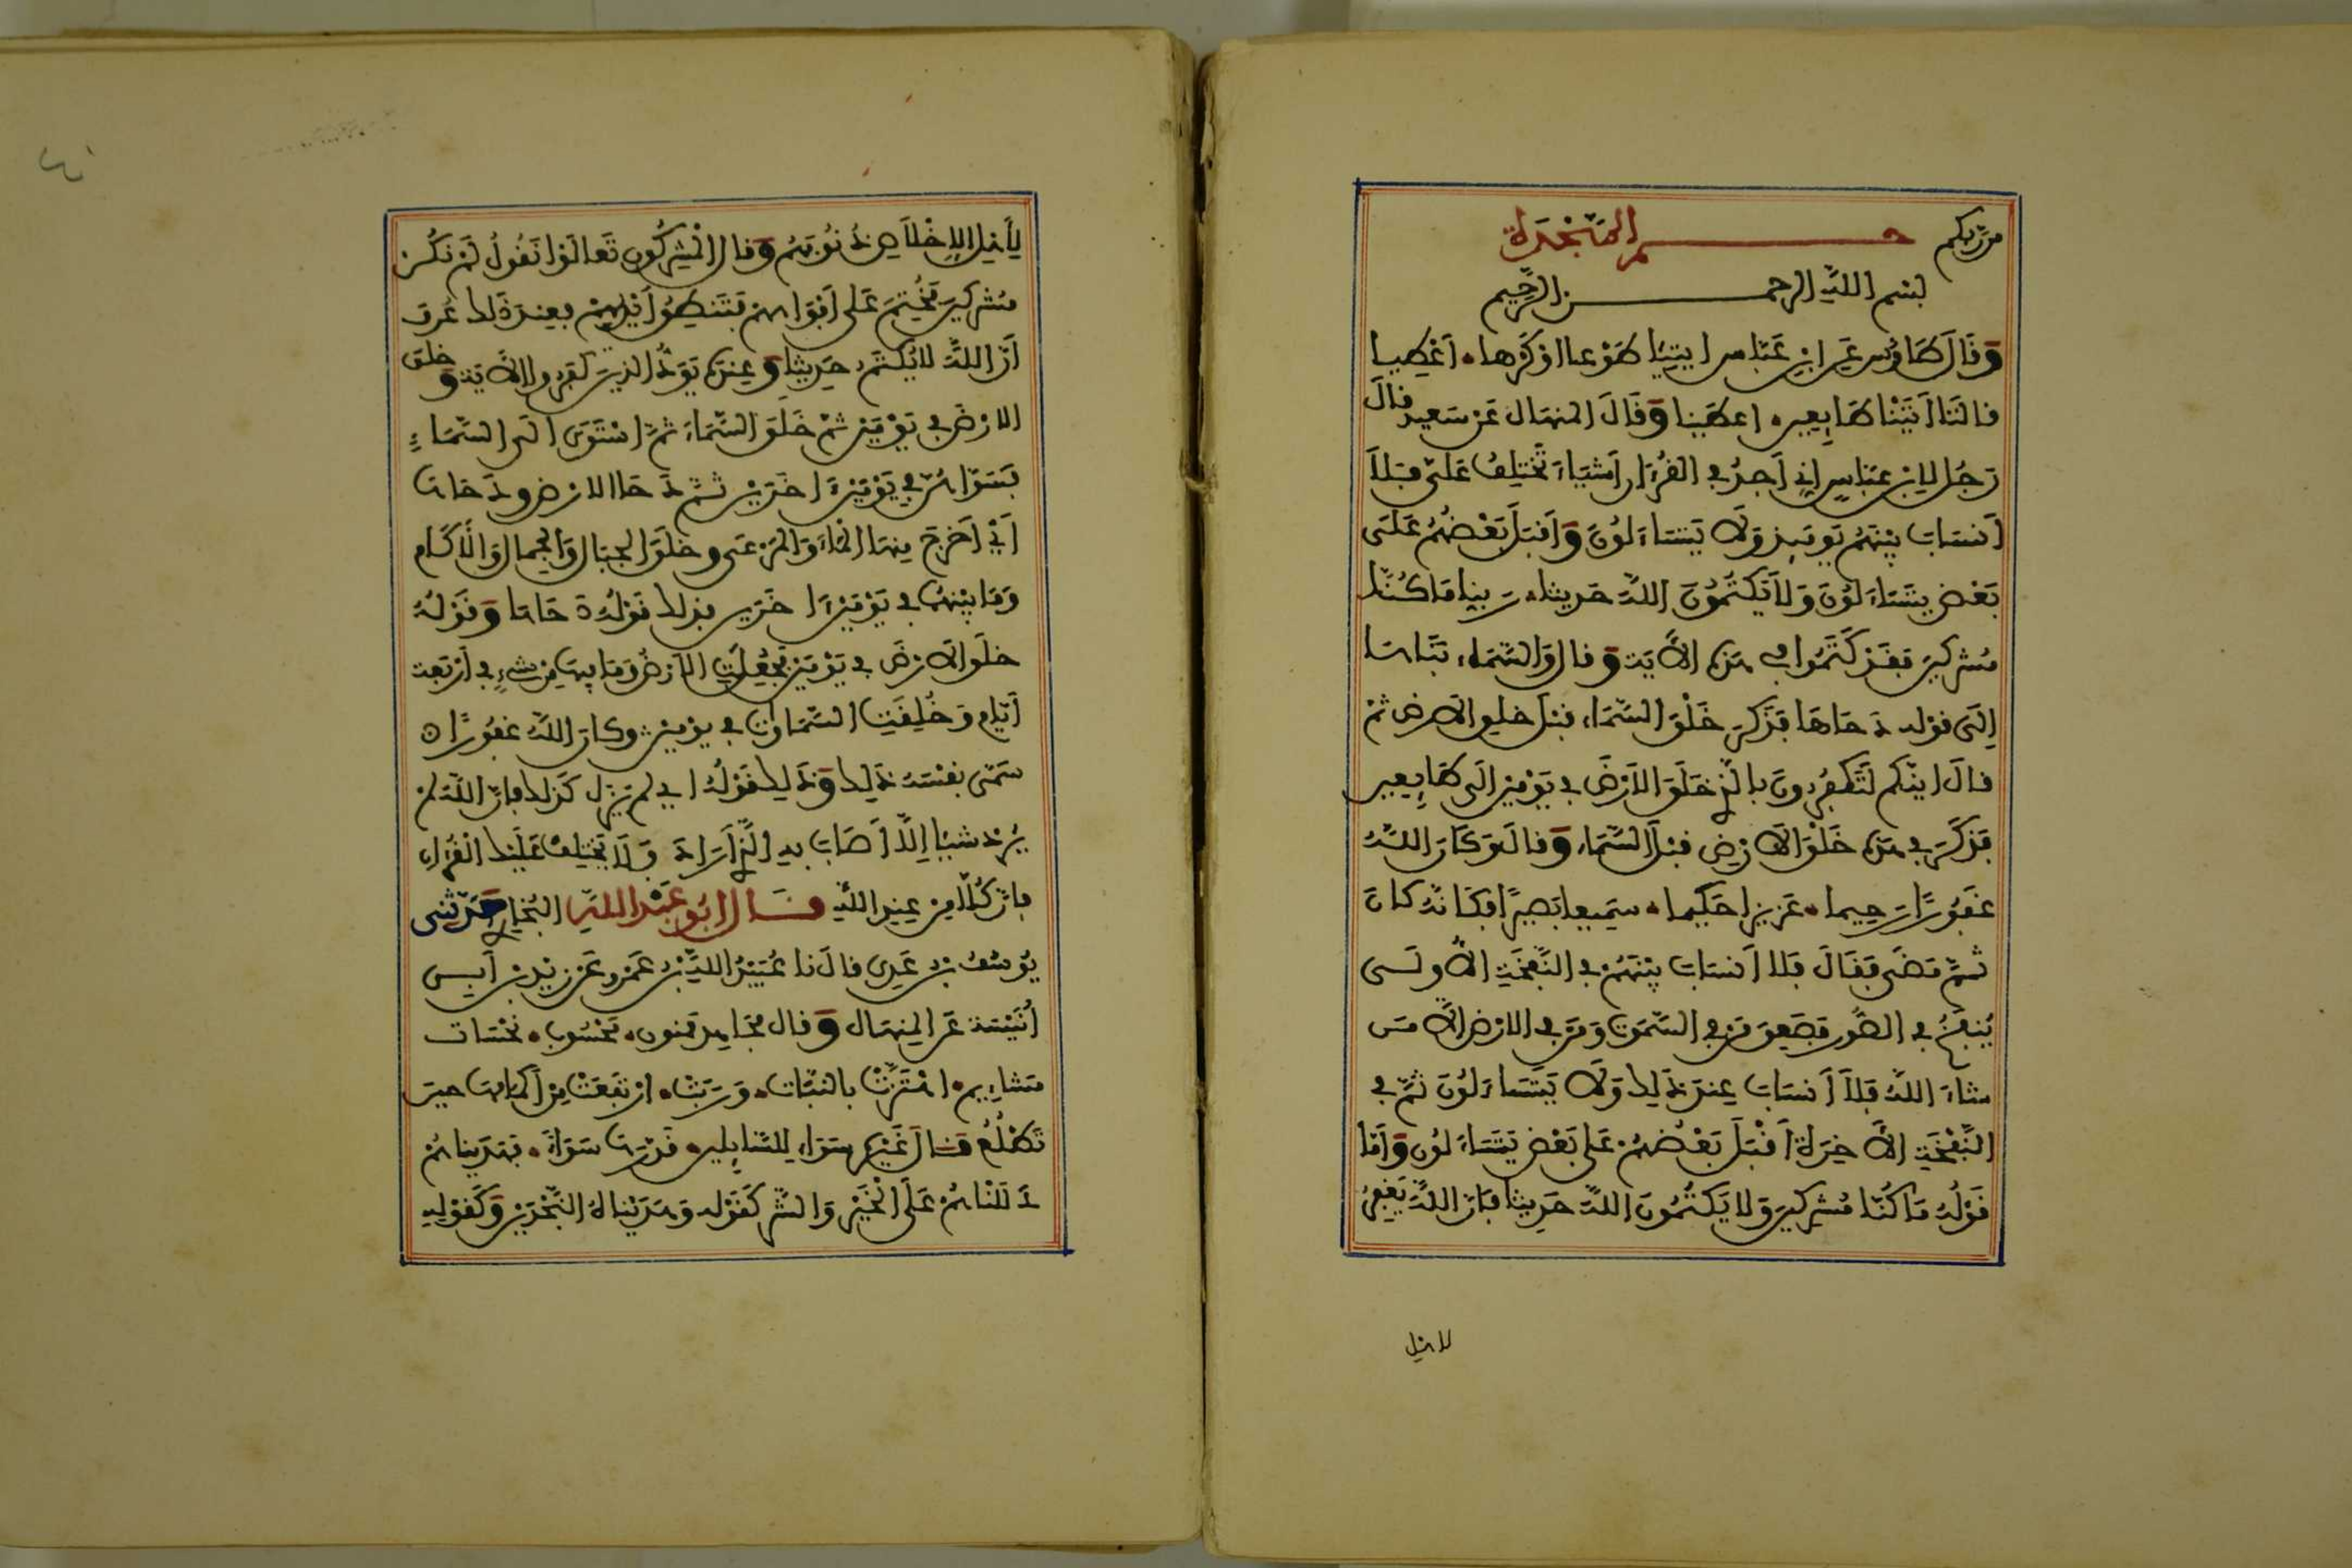 من ربكم حـــــــم السجدة
بسم الله الرحمـــــــن الرحيم
وَقَالَ طَاوُس عَنِ ابْنِ عَبَّاس ايتِيَا طَوْعا او كَرْها، اَعْطِيا
قالتا اَتَيْنا طايِعِين، اعطينا وَقَالَ المنهال عَنْ سَعِيد قال
رَجُل لِابْنِ عبّاسٍ اِنِّي اَجِدُ في القُرْءان اَشْيَاءَ تَخْتَلِفُ عَلَيَّ فَلَا
اَنسَابَ بَيْنَهُم يَوْمَئِذٍ وَلَا يَتَسَاءَلُونَ وَاَقْبَلَ بَعْضُهُمْ عَلَى
بَعْضٍ يَتَسَاءَلُونَ وَلَا يَكْتُمُونَ اللهَ حَدِيثا، ربنا مَا كُنَّا
مُشركينَ فَقَدْ كَتَمُوا في هذه الاَيَة وقال وَالسَّمَاء بَنَاهَا
اِلَى قوله دَحَاهَا فَذَكَرَ خَلْقَ السَّمَاء قبْل خلق الارض ثمَّ
قالَ اينّكم لَتَكْفُرونَ بالَّذِي خَلَقَ الاَرْضَ في يَوْمَيْنِ الَى طَايِعِين
فَذكَرَ في هذه خَلْقَ الاَرْضِ قبْلَ السَّمَاء وقالَ وَكَانَ اللهُ
غَفُورًا رَحِيما، عَزِيزا حَكِيما، سَمِيعا بَصِيرًا فكَأنهُ كانَ
ثُمَّ مَضَى فَقَالَ فَلَا اَنسَابَ بَيْنَهُمْ في النَّفْخَةِ الاُولَى
يُنْفَخُ في الصُّور فَصَعِقَ مَن في السَّموات وَمَن في الارْض الاَّ مَن
شَاءَ اللهُ فَلَا اَنسَابَ عِندَ ذَلِكَ وَلَا يَتَسَاءَلُونَ ثمَّ في
النَّفْخَةِ الاَخِرَة اَقْبَلَ بَعْضُهُمْ عَلى بَعْضٍ يَتَسَاءَلُون وَاَمَّا
قَوْلُهُ مَا كُنَّا مُشركينَ وَلَا يَكْتُمُونَ اللهَ حَدِيثا فَإنَّ اللهَ يَغْفِرُ
لاهل
لِاَهْلِ الاِخْلَاصِ ذُنُوبَهُم وَقال الْمُشْرِكُون تَعَالَوْا نَقُولُ لَمْ نَكُن
مُشركينَ فَخُتِمَ عَلى اَفْوَاهِهِمْ فَتَنطِقُ اَيْدِيهِمْ فعِندَ ذَلك عُرِفَ
اَنَّ اللهَ لَا يُكْتَمُ حَدِيثا وَعِندَهُ يَوَدُّ الذينَ كفَرُوا الاَيَة وخلق
الارْضَ في يَوْمَيْنِ ثمَّ خَلَقَ السَّمَاءَ ثمَّ اسْتَوَى الَى السَّمَاءِ
فَسَوَّاهُنَّ في يَوْمَيْنِ ءَاخَرَيْنِ ثمَّ دَحَا الارْض ودَحَاها
اَنْ اَخْرَجَ مِنهَا الْمَاءَ وَالمرْعَى وخلَقَ الجِبَالَ وَالجِمالَ وَالاَكَام
وَمَا بَيْنَهُمَا في يَوْمَيْنِ ءَاخَرَيْنِ فذلك قوْلُهُ دَحَاهَا وَقَوْلُهُ
خلَقَ الاَرْضَ في يَوْمَيْنِ فَجُعِلَتِ الارْضُ وَمَا فيهَا مِنْ شَيْءٍ في اَرْبَعة
اَيَّام وَخُلِقَتِ السَّمَاوَات في يوْمَيْنِ وكانَ اللهُ غفُورًا
سَمَّى نفْسَهُ ذَلِكَ وَذَلِكَ قَوْلُهُ اي لم يَزَل كَذلك فإنَّ اللهَ لمْ
يُرِدْ شيْئا اِلَّا اَصَابَ بهِ الَّذِي اَرَادَ وَلَا يَخْتَلِفْ عَلَيْكَ الْقُرءان
فإنَّ كُلًّا مِن عِندِ اللهِ قــال ابُو عَبْد اللهِ البُخَاري حَدَّثَنِي
يُوسُفُ بْنُ عَدِي قالَ نا عُبَيْدُ اللهِ بْنُ عَمْرو عَن زَيْد بْنِ اَبِي
اُنَيْسَة عَنِ المِنهَال وَقال مجَاهِد مَمْنُون، مَحْسُوب، نحْسَات
مَشاييم، اهْتَزَّتْ بالنَّبَات، وَرَبَتْ، ارْتَفَعَتْ مِنْ اَكْمَامِهَا حِينَ
تَطْلُعُ وقال غَيْرُهُ سَوَاء لِلسَّايِلِين، قَدَّرَهَا سَوَاءً، فَهَدَيْناهُمْ
دَلَلْنَاهُمْ عَلَى الْخَيْر وَالشَّر كَقَوْله وَهَدَيْناهُ النَّجْدَيْنِ وَكَقَوْلِهِ